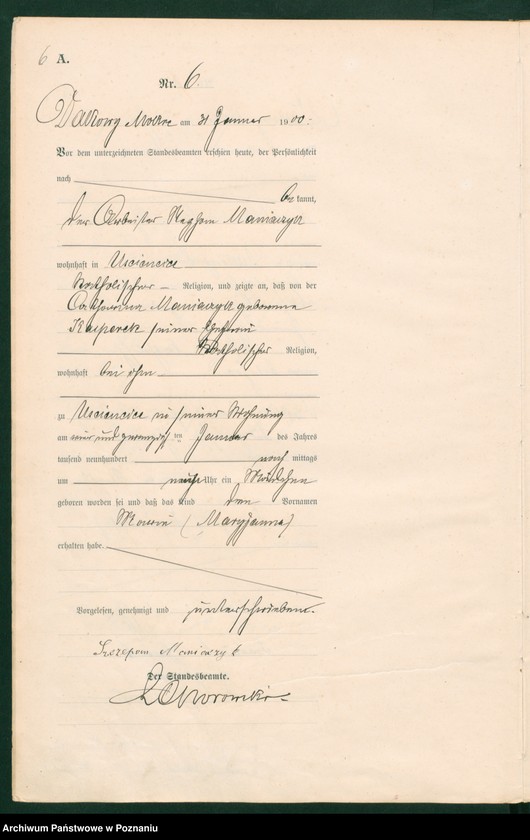 6 A.
Nr. 6.
Dakowy Mokre am 31 Januar 1900:
Vor dem unterzeichneten Standesbeamten erschien heute, der Persönlichkeit
nach
be kannt,
der Arbeiter Stephan Maniaczyk
wohnhaft in Uścięcice
katholischer Religion, und zeigte an, daß von der
Catharina Maniaczyk geborene
Kasperek seiner Ehefrau
katholischer Religion,
wohnhaft bei ihm
zu Uścięcice in seiner Wohnung
am ten Januar des Jahres
tausend neunhundert nach mittags
um Uhr ein Mädchen
geboren worden sei und daß das Kind den Vornamen
(Maryanna)
erhalten habe.
Vorgelesen, genehmigt und unterschrieben.
Szczepan Maniaczyk
Der Standesbeamte.
Archiwum Państwowe w Poznaniu